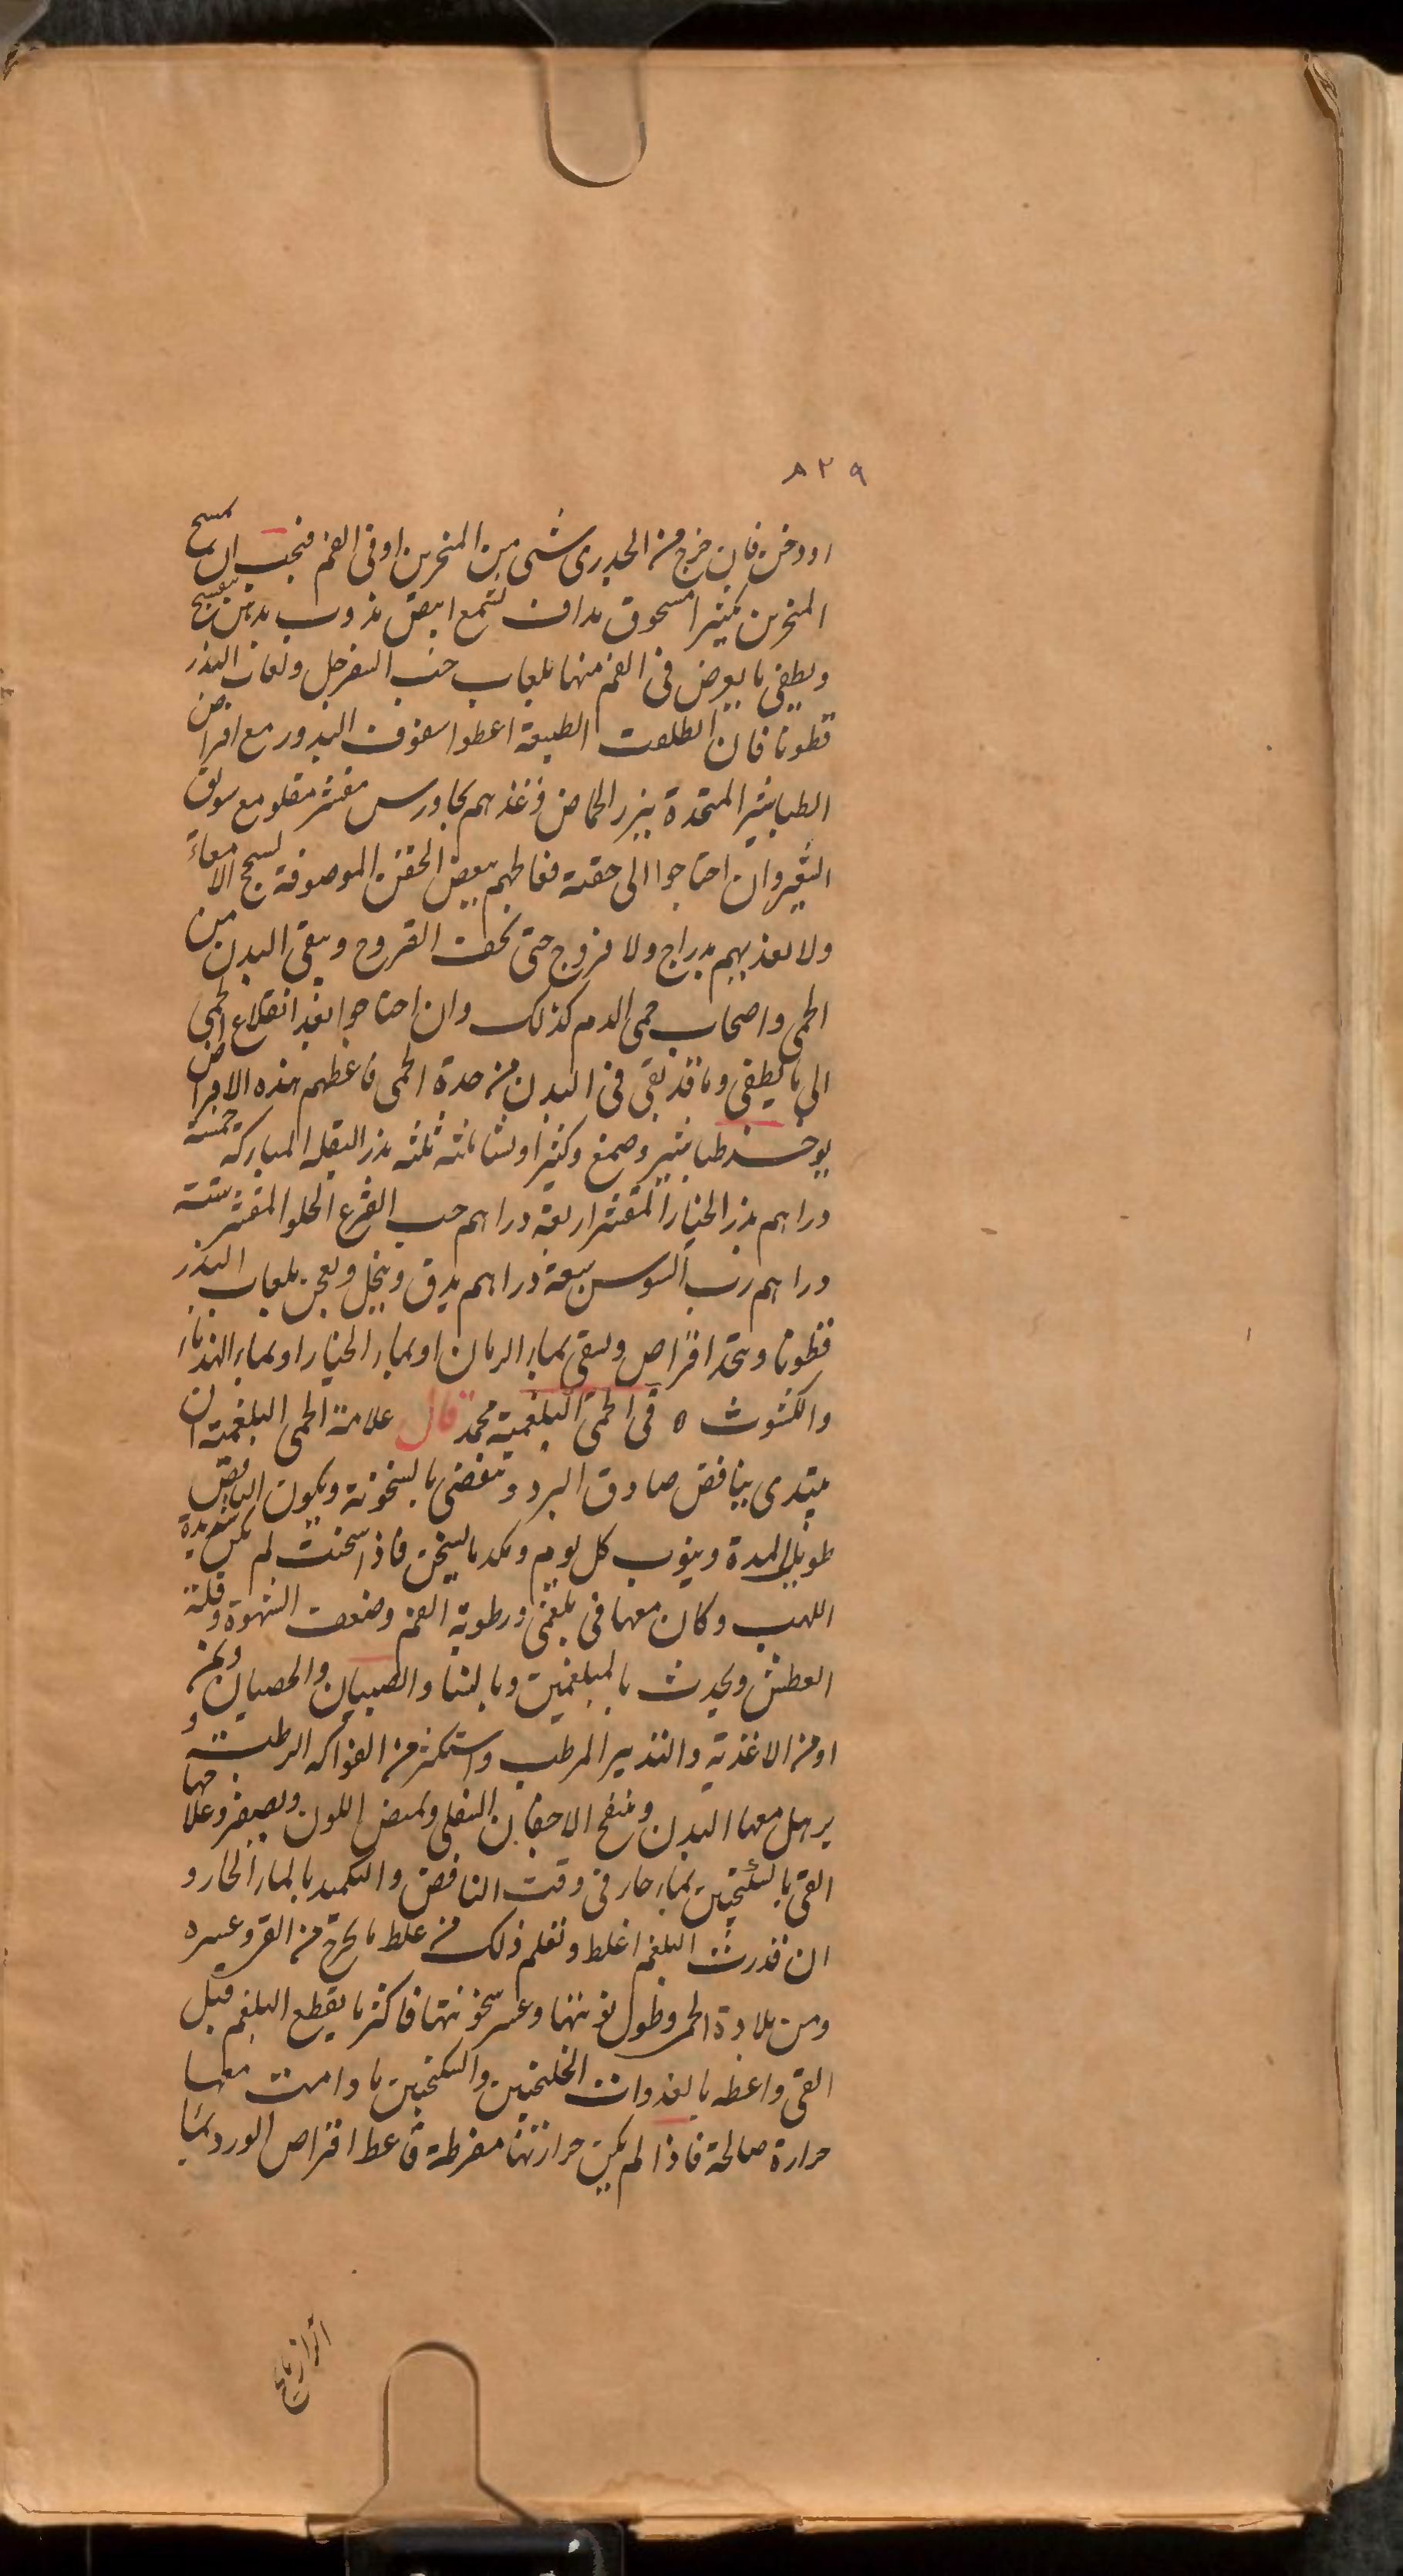 ٨٢٩
او دخن فان خرج من الجدرى شى من المنخرين او فى الفم فيجب ان يمسح
المنخرين بكثيرا مسحوق مداف بشمع ابيض مذوب بدهن بنفسج
ويطفى ما يعرض فى الفم منها بلعاب حب السفرجل ولعاب البذر
قطونا فان انطلقت الطبيعة اعطوا سفوف البذور مع اقراص
الطباشير المتخذة ببزر الحماض وغذهم بجاورس مقشر مقلو مع سويق
الشعير وان احتاجوا الى حقنة فعالجهم ببعض الحقن الموصوفة لسحج الامعاء
ولا تغذيهم بدراج ولا فروج حتى تجف القروح وينقى البدن من
الحمى واصحاب حمى الدم كذلك وان احتاجوا بعد انقلاع الحمى
الى ما يطفى وما قد بقى فى البدن من حدة الحمى فاعطهم هذه الاقراص
يوخذ طباشير وصمغ وكثيرا ونشا ثلثة ثلثة بذر البقلة المباركة خمسة
دراهم بذر الخيار المقشر اربعة دراهم حب القرع الحلو المقشر ستة
دراهم رب السوس سبعة دراهم يدق وينخل ويعجن بلعاب البذر
قطونا ويتخذ اقراص ويسقى بماء الرمان او بماء الخيار او بماء الهندباء
والكشوث ه فى الحمى البلغمية محمد قال علامة الحمى البلغمية ان
يبتدى بنافض صادق البرد وتنقضى بالسخونة ويكون النافض
طويل المدة وينوب كل يوم ما يسخن فاذا سخنت لم يكن شديدة
اللهب وكان معها قى بلغمى ورطوبة الفم وضعف الشهوة وقلة
العطش ويحدث بالمبلغمين وبالنسا والصبيان والخصيان ولمن
او من الاغذية والتدبير المرطب واستكثر من الفواكه الرطبة و
يرهل معها البدن وينتفخ الاجفان السفلى ويبيض اللون ويصفر وعلاجها
القى بالسكنجبين بماء حار فى وقت النافض والتكميد بالماء الحار و
ان قدرت البلغم اغلظ وتعلم ذلك من غلظ ما يخرج من القى وعسره
ومن بلادة الحمى وطول نوبتها وعسر سخونتها فاكثر ما يقطع البلغم قبل
القى واعطه بالغدوات الخلنجبين والسكنجبين ما دامت معها
حرارة صالحة فاذا لم يكن حرارتها مفرطة فاعط اقراص الورد بماء
الرازيانج